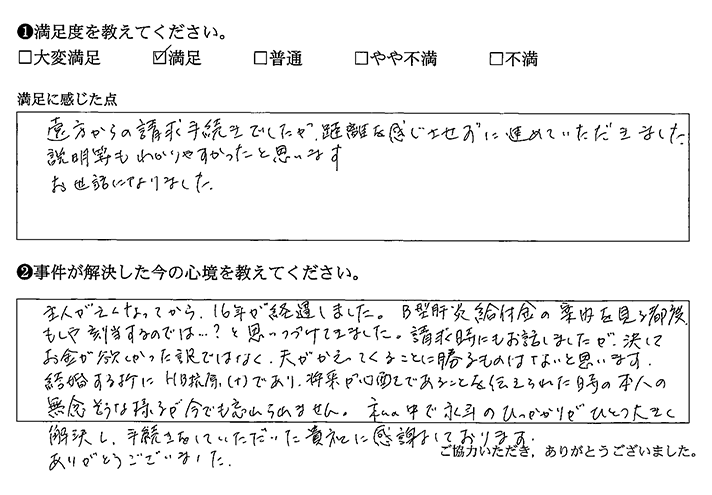 ❶満足度を教えてください。
□大変満足 ☑満足 □普通 □やや不満 □不満
満足に感じた点
遠方からの請求手続きでしたが、距離を感じさせずに進めていただきました。
説明等もわかりやすかったと思います
お世話になりました。
❷事件が解決した今の心境を教えてください。
主人が亡くなってから、16年が経過しました。B型肝炎給付金の案内を見る都度、
もしや該当するのでは…?と思いつづけてきました。請求時にもお話しましたが、決して
お金が欲しかった訳ではなく、夫がかえってくることに勝るものはないと思います。
結婚する折にHB抗原(+)であり、将来が心配であることを伝えられた時の本人の
無念そうな様子が今でも忘れられません。私の中で永年のひっかかりがひとつ大きく
解決し、手続きをしていただいた貴社に感謝しております。
ありがとうございました。
ご協力いただき、ありがとうございました。